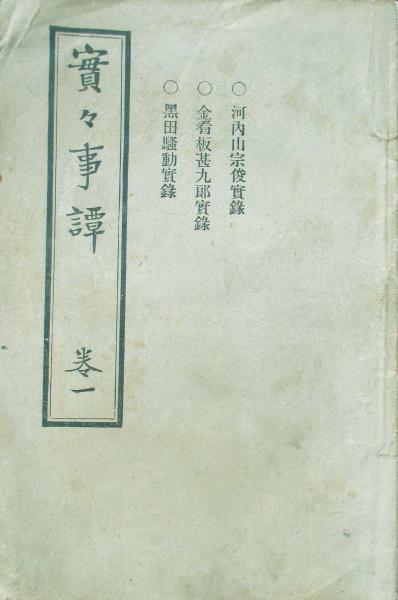 ○河內山宗俊實錄
○金看板甚九郎實錄
○黑田騷動實錄
實々事譚
卷一